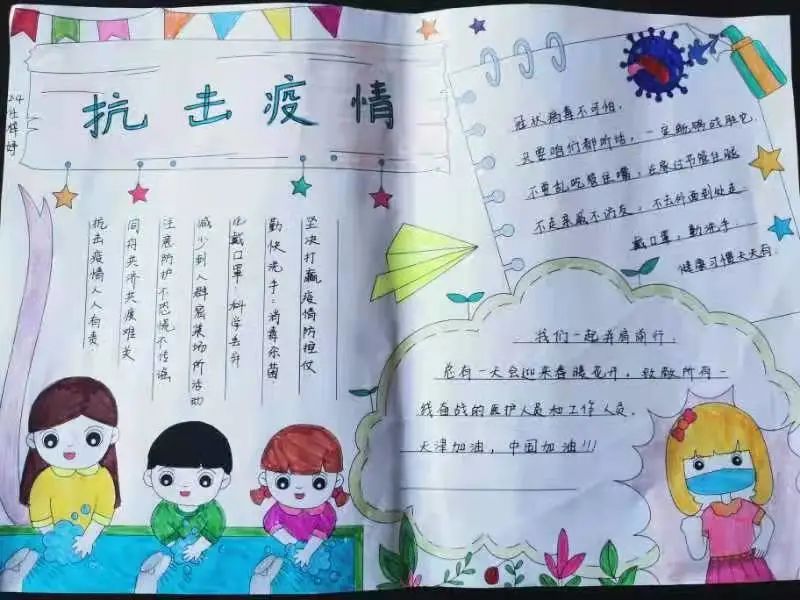 抗击疫情
坚决打赢疫情防控仗
勤快洗手:消毒杀菌
必戴口罩 科学丢弃
减少到人群密集场所活动
注意防护不恐慌不传谣
同舟共济共度难关
抗击疫情人人有责
冠状病毒不可怕,
只要咱们都听话,一定能够战胜它.
不要乱吃管住嘴,在家过节管住腿
不走亲戚不访友,不去外面到处走
戴口罩,勤洗手.
健康习惯天天有.
我们一起并肩前行.
总有一天会迎来春暖花开,致敬所有一
线奋战的医护人员和工作人员.
天津加油,中国加油!!!